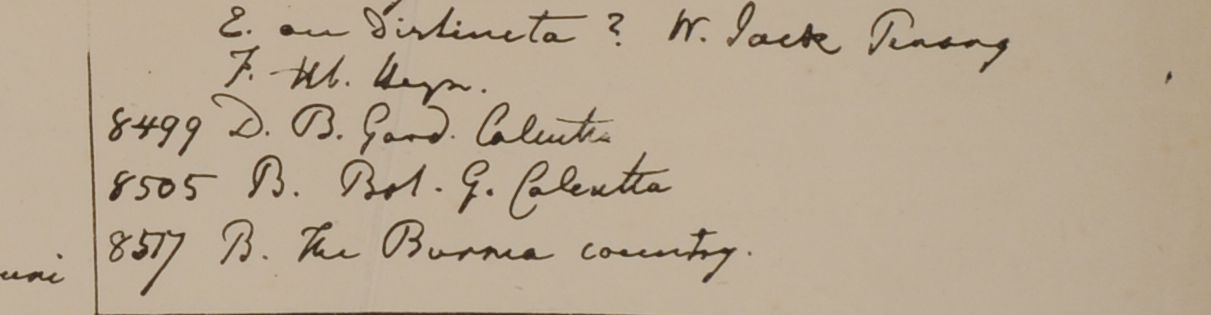 E. an distincta? W. Jack Penang
F. Hb. Heyn.
8499 D. B. Gard. Calcutta
8505 B. Bot. G. Calcutta
8517 B. The Burma country.